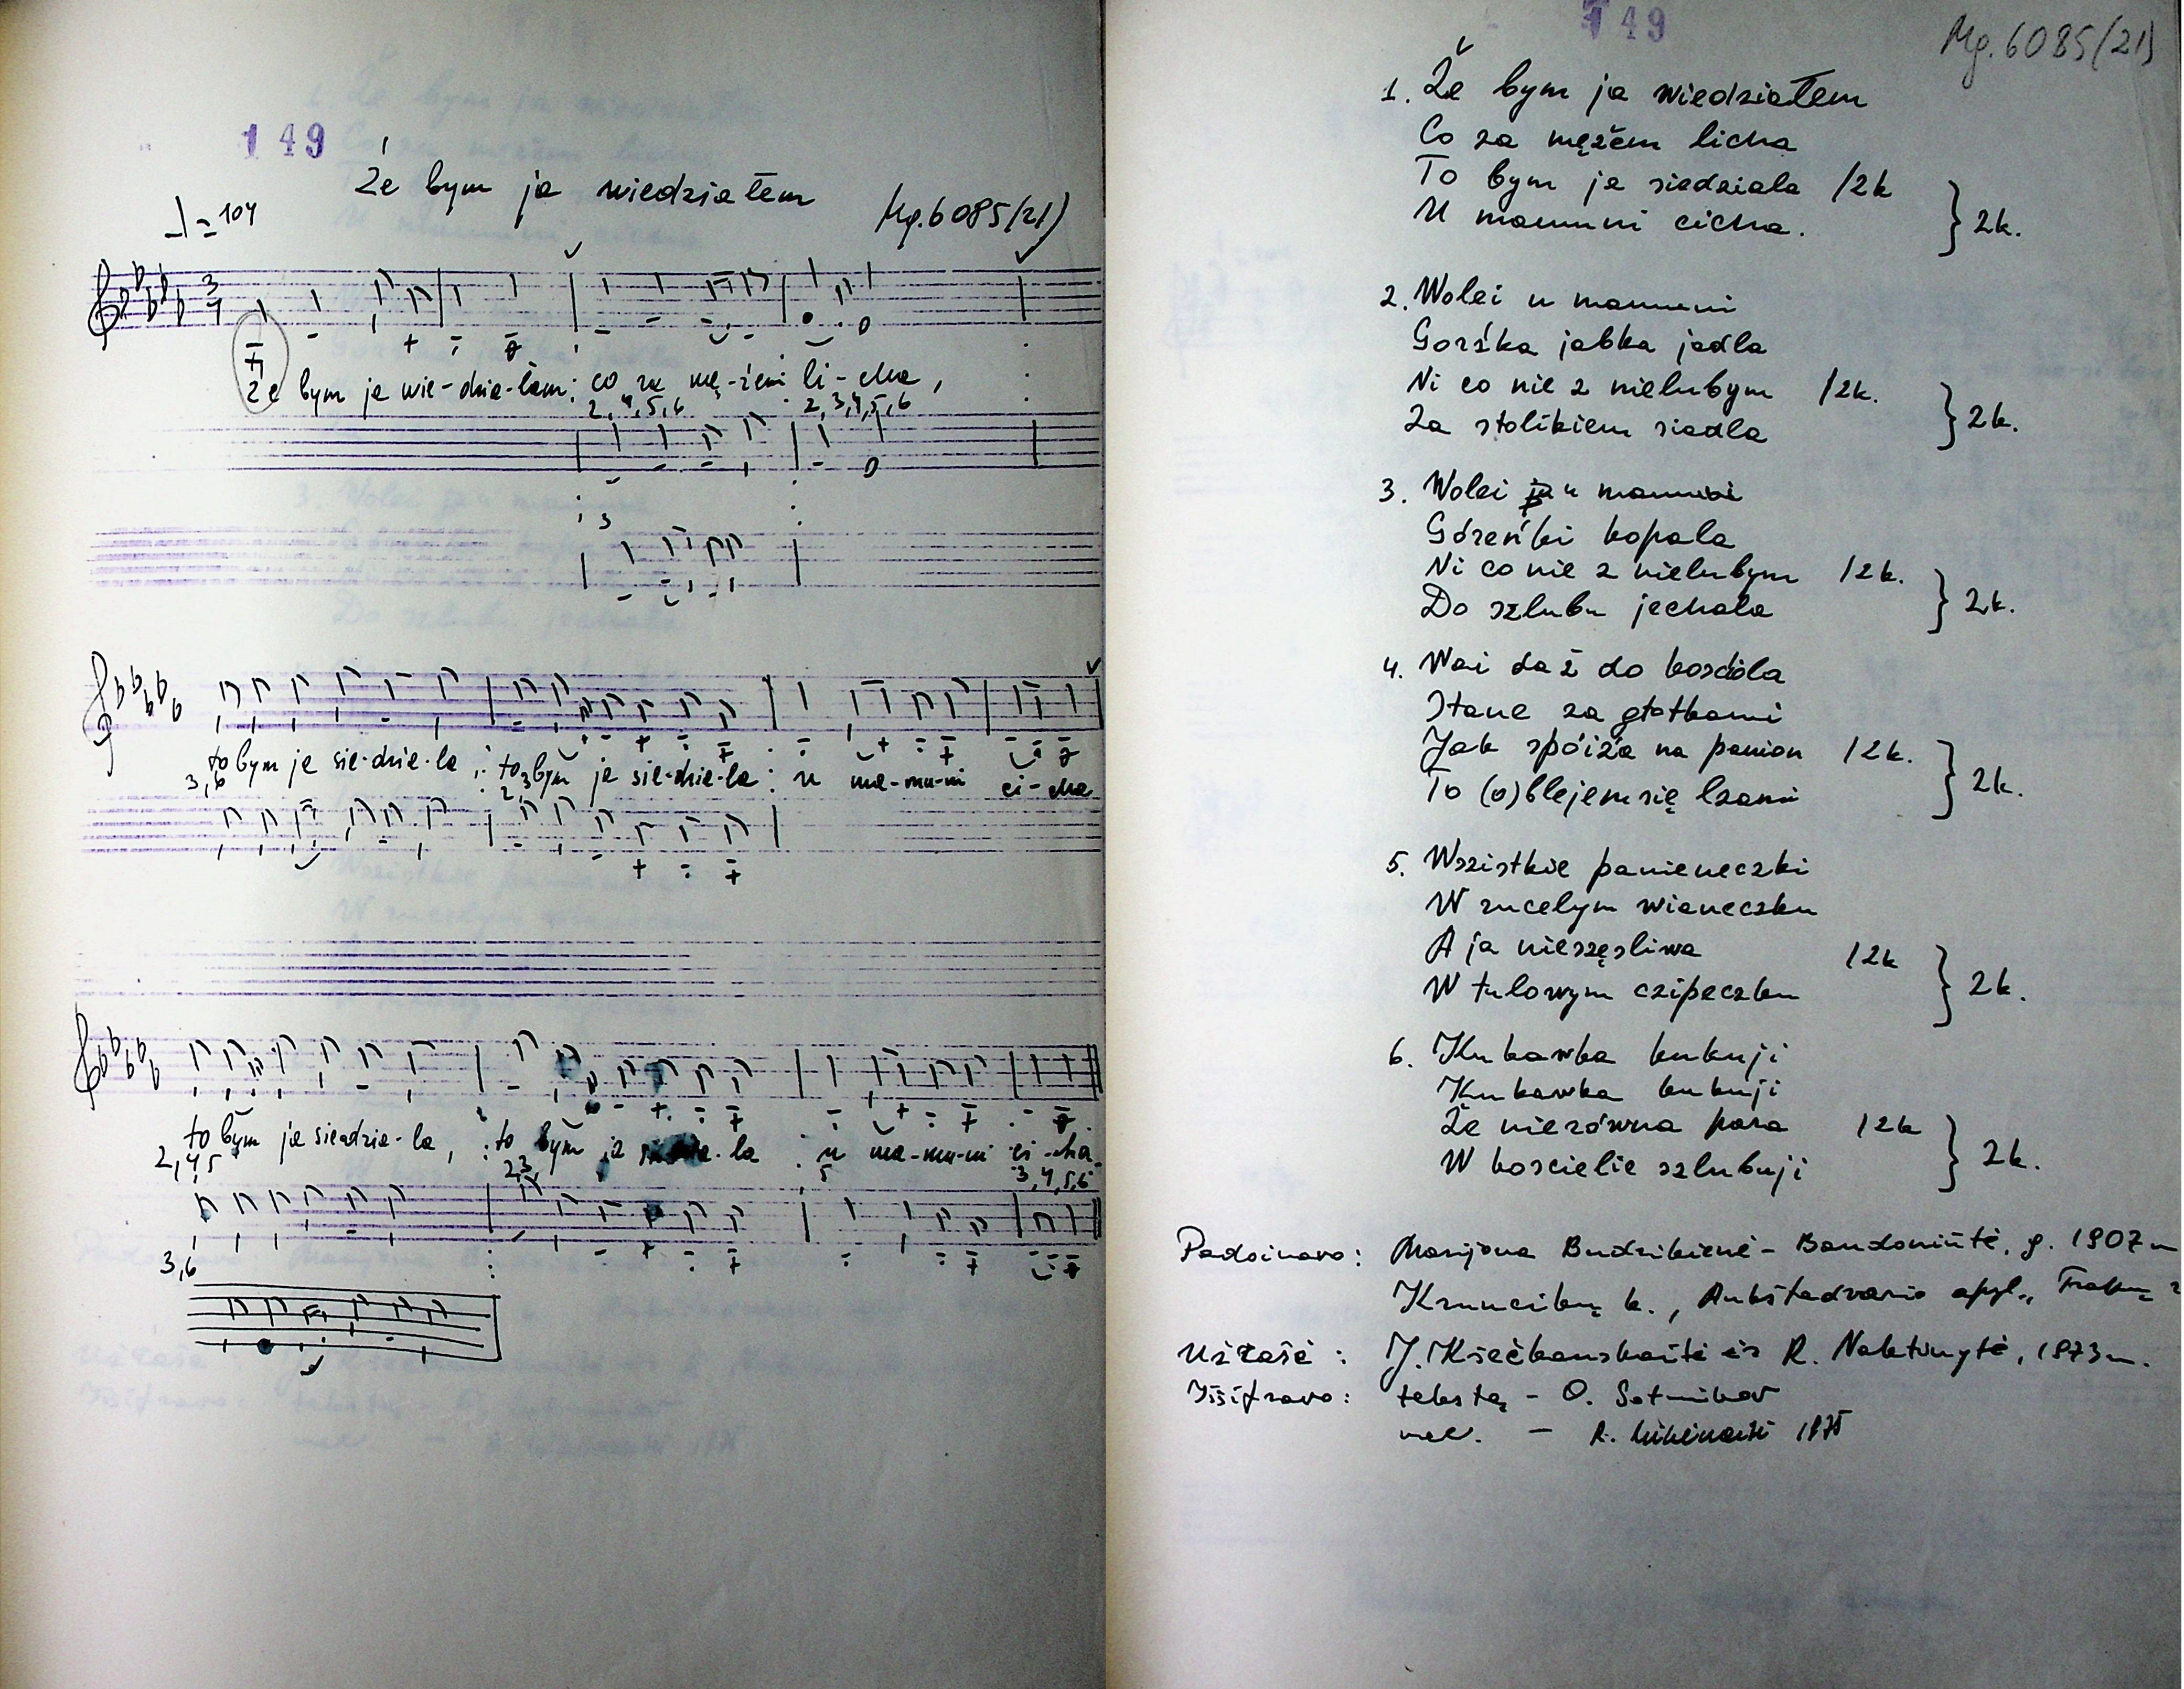 149
Že bym ja wiedziałem
♩=104
Mg.6085(21)
3
4
Že bym ja wie-dzia-łem: co za mę-żem li-cha,
2,4,5,6 2,3,4,5,6
3
to bym ja sie-dzia-la, to bym ja sie-dzia-la: u ma-mu-ni ci-cha
3,6 2,3
to bym ja siedzia-la, to bym ja la u ma-mu-ni ci-cha
2,4,5 2,3, 5 3,4,5,6
3,6
149
Mg.6085(21)
1. Že bym ja wiedziałem
Co za mężem licha
To bym ja siedziala /2k
U mamuni cicha. } 2k.
2. Wolei u mamuni
Gorśka jabka jadla
Ni co nie z nielubym /2k.
Za stolikiem siadla } 2k.
3. Wolei u mamuni
Góreńki kopala
Ni co nie z nielubym /2k.
Do szlubu jechala } 2k.
4. do koscióla
Stane za
Jak na panion /2k.
To (o)blejem się lzami } 2k.
5. Wszistkie panieneczki
W rucelym wianeczku
A ja nieszęsliwa /2k
W tulowym czipeczku } 2k.
6. Kukawka kukuji
Kukawka kukuji
Že nierówna para /2k
W koscielie szlubuji } 2k.
Padainavo: Marijona Budzikienė - Bandoniūtė, g. 1907 m
k., Aukštadvario apyl., Trakų
Užrašė: J. ir R. Naktinytė, 1973 m.
Iššifravo: tekstą - O. Sotnikov
mel. - R. 1975